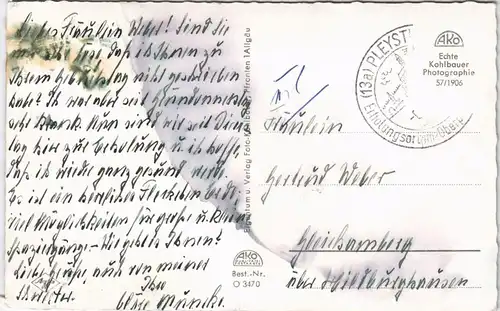 Liebes Fräulein Weber! Sind Sie
mir sehr böse, daß ich Ihnen zu
Ihrem Geburtstag nicht geschrieben
habe? Ich war aber seit
krank. Nun sind wir seit Diens-
tag hier zur Erholung u. ich hoffe,
daß ich wieder ganz gesund werde.
Es ist ein herrliches Fleckchen Erde
viel Möglichkeiten für große u. kleine
Spaziergänge. – Wie geht es Ihnen?
Recht herzl. Grüße, auch von meiner
Schwester.
Ihre
Eigentum u. Verlag Foto-Kohlbauer Pfronten 1 Allgäu
AKO
Best.-Nr.
O 3470
(13a) PLEYST
Erholungsort
AKO
Echte
Kohlbauer
Photographie
57/1906
Fräulein
Gertrud Weber
Gleichamberg
über Hildburghausen